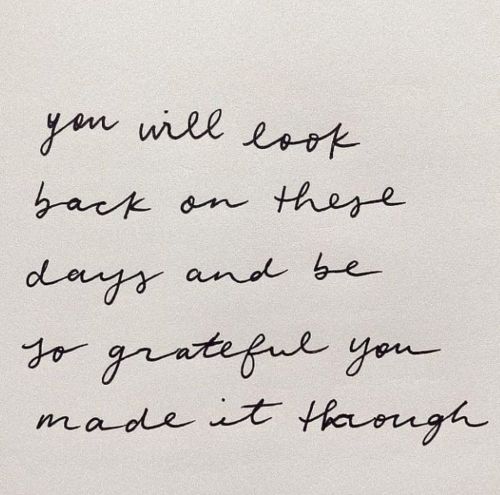 you will look
back on these
days and be
so grateful you
made it through